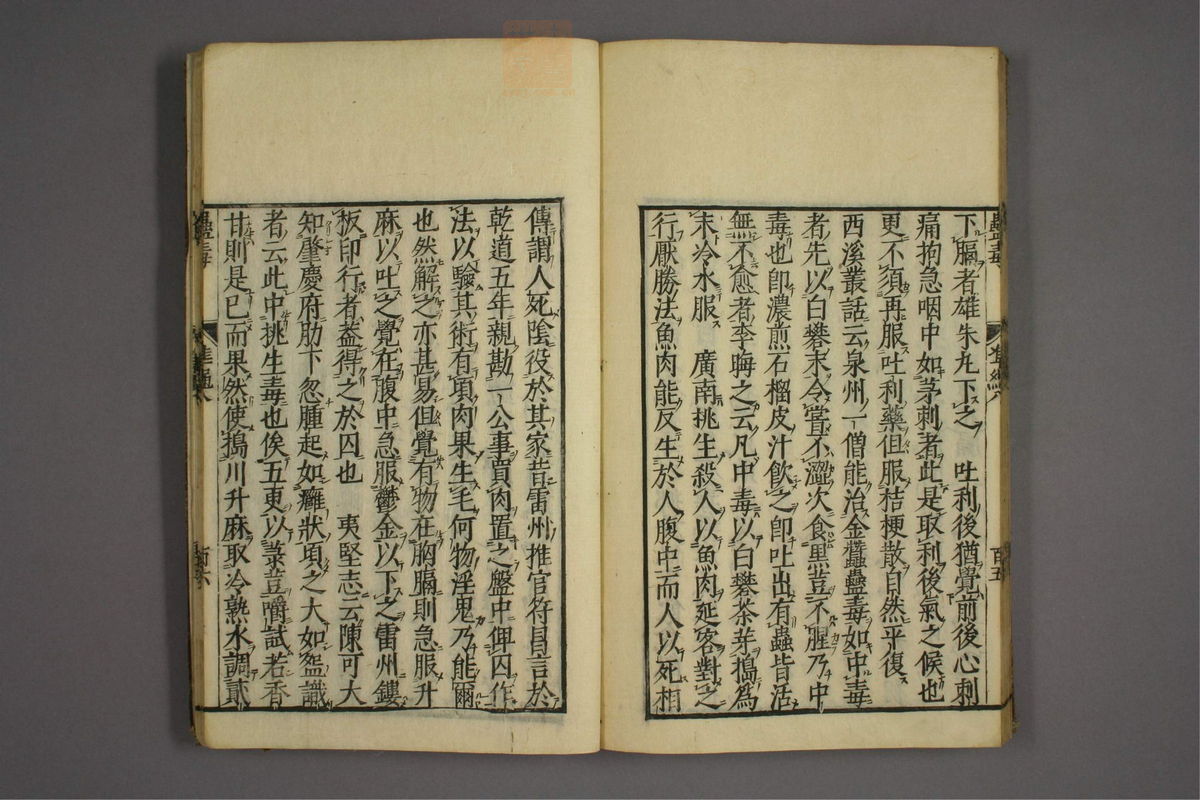 下膈者雄朱丸下之 吐利後猶覺前後心刺
痛拘急咽中如茅刺者此是取利後氣之候也
更不須再服吐利藥但服桔梗散自然平復
西溪叢話云泉州一僧能治金蠶蠱毒如中毒
者先以白礬末令嘗不澀次食黒豆不腥乃中
毒也即濃煎石榴皮汁飲之即吐出有蟲皆活
無不愈者李晦之云凡中毒以白礬茶芽搗為
末冷水服 廣南挑生殺人以魚肉延客對之
行厭勝法魚肉能反生於人腹中而人以死相
傳謂人死陰役於其家昔雷州推官符昌言於
乾道五年親勘一公事買肉置之盤中俾囚作
法以驗其術有項肉果生毛何物淫鬼乃能爾
也然解之亦甚易但覺有物在胸膈則急服升
麻以吐之覺在腹中急服鬱金以下之雷州鏤
板印行者葢得之於囚也 夷堅志云陳可大
知肇慶府肋下忽腫起如癰狀頃之大如盌識
者云此中挑生毒也俟五更以菉豆嚼試若香
甘則是已而果然使搗川升麻取冷熟水調貳
蠱毒
百五
蠱毒
百六